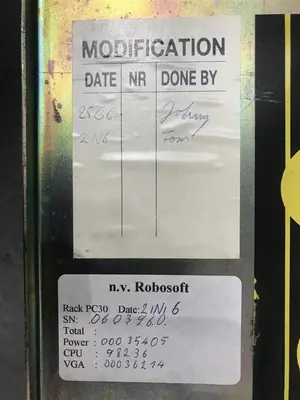 MODIFICATION
DATE NR DONE BY
2566 Johny
2N6 Tom
n.v. Robosoft
Rack PC30 Date: 21N16
SN: 0603260
Total :
Power : 00035405
CPU : 98236
VGA : 00036214